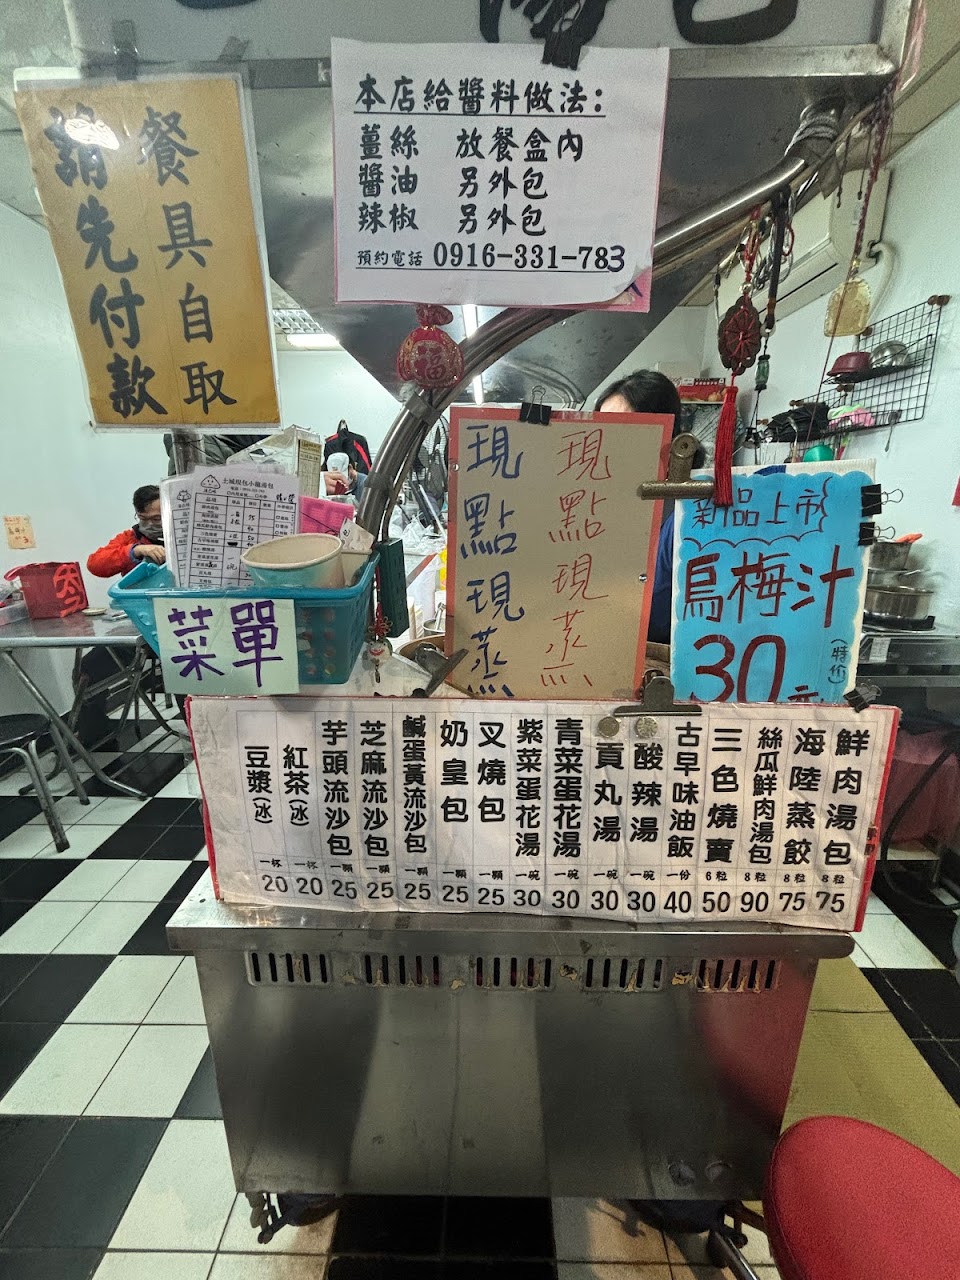 湯包
本店給醬料做法:
薑絲 放餐盒內
醬油 另外包
辣椒 另外包
預約電話 0916-331-783
餐具自取
請先付款
福
現點現蒸
現點現蒸
新品上市
烏梅汁
30元
(特價)
土城現包小籠湯包
菜單
鮮肉湯包 8粒 75
海陸蒸餃 8粒 75
絲瓜鮮肉湯包 8粒 90
三色燒賣 6粒 50
古早味油飯 一份 40
酸辣湯 一碗 30
貢丸湯 一碗 30
青菜蛋花湯 一碗 30
紫菜蛋花湯 一碗 30
叉燒包 一顆 25
奶皇包 一顆 25
鹹蛋黃流沙包 一顆 25
芝麻流沙包 一顆 25
芋頭流沙包 一顆 25
紅茶(冰) 一杯 20
豆漿(冰) 一杯 20